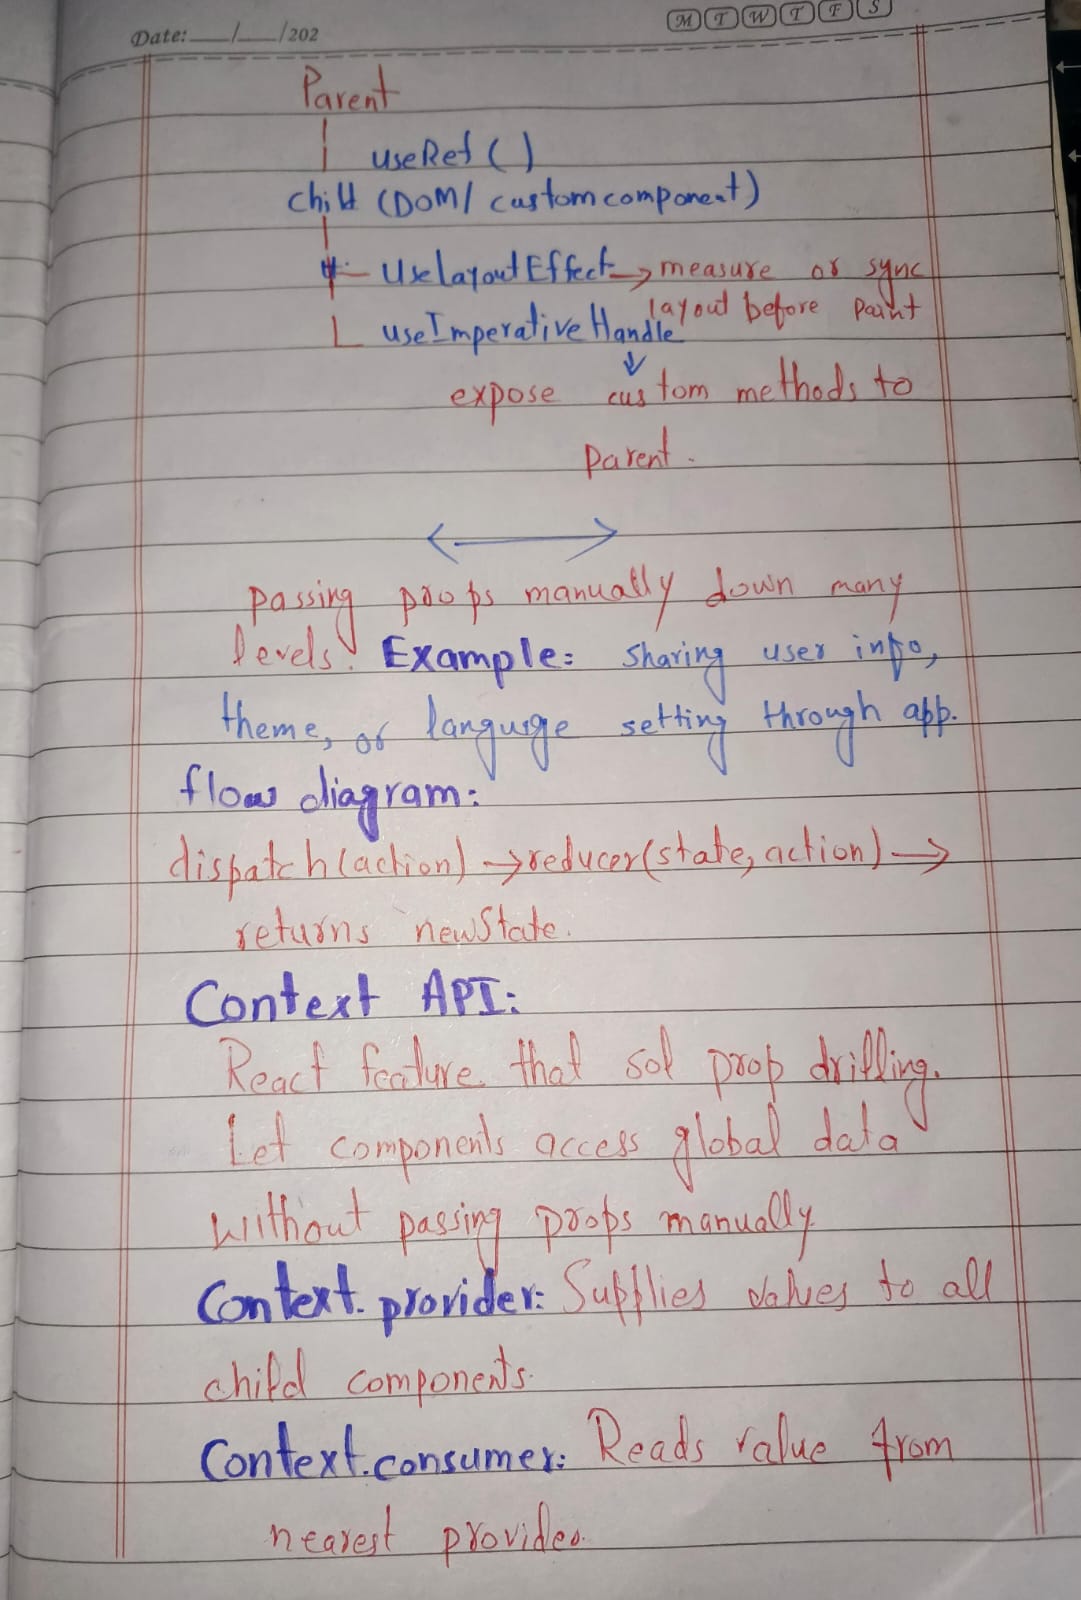 Date: ___/___/202
M T W T F S
Parent
useRef ( )
child (DOM/ custom component)
UselayoutEffect → measure or sync
layout before paint
useImperativeHandle
expose custom methods to
parent.
passing props manually down many
levels. Example: sharing user info,
theme, or langurge setting through app.
flow diagram:
dispatch(action) → reducer(state, action) →
returns newState.
Context API:
React feature that sol prop drilling.
Let components access global data
without passing props manually
Context.provider: Supplies values to all
child components.
Context.consumer: Reads value from
nearest provider.